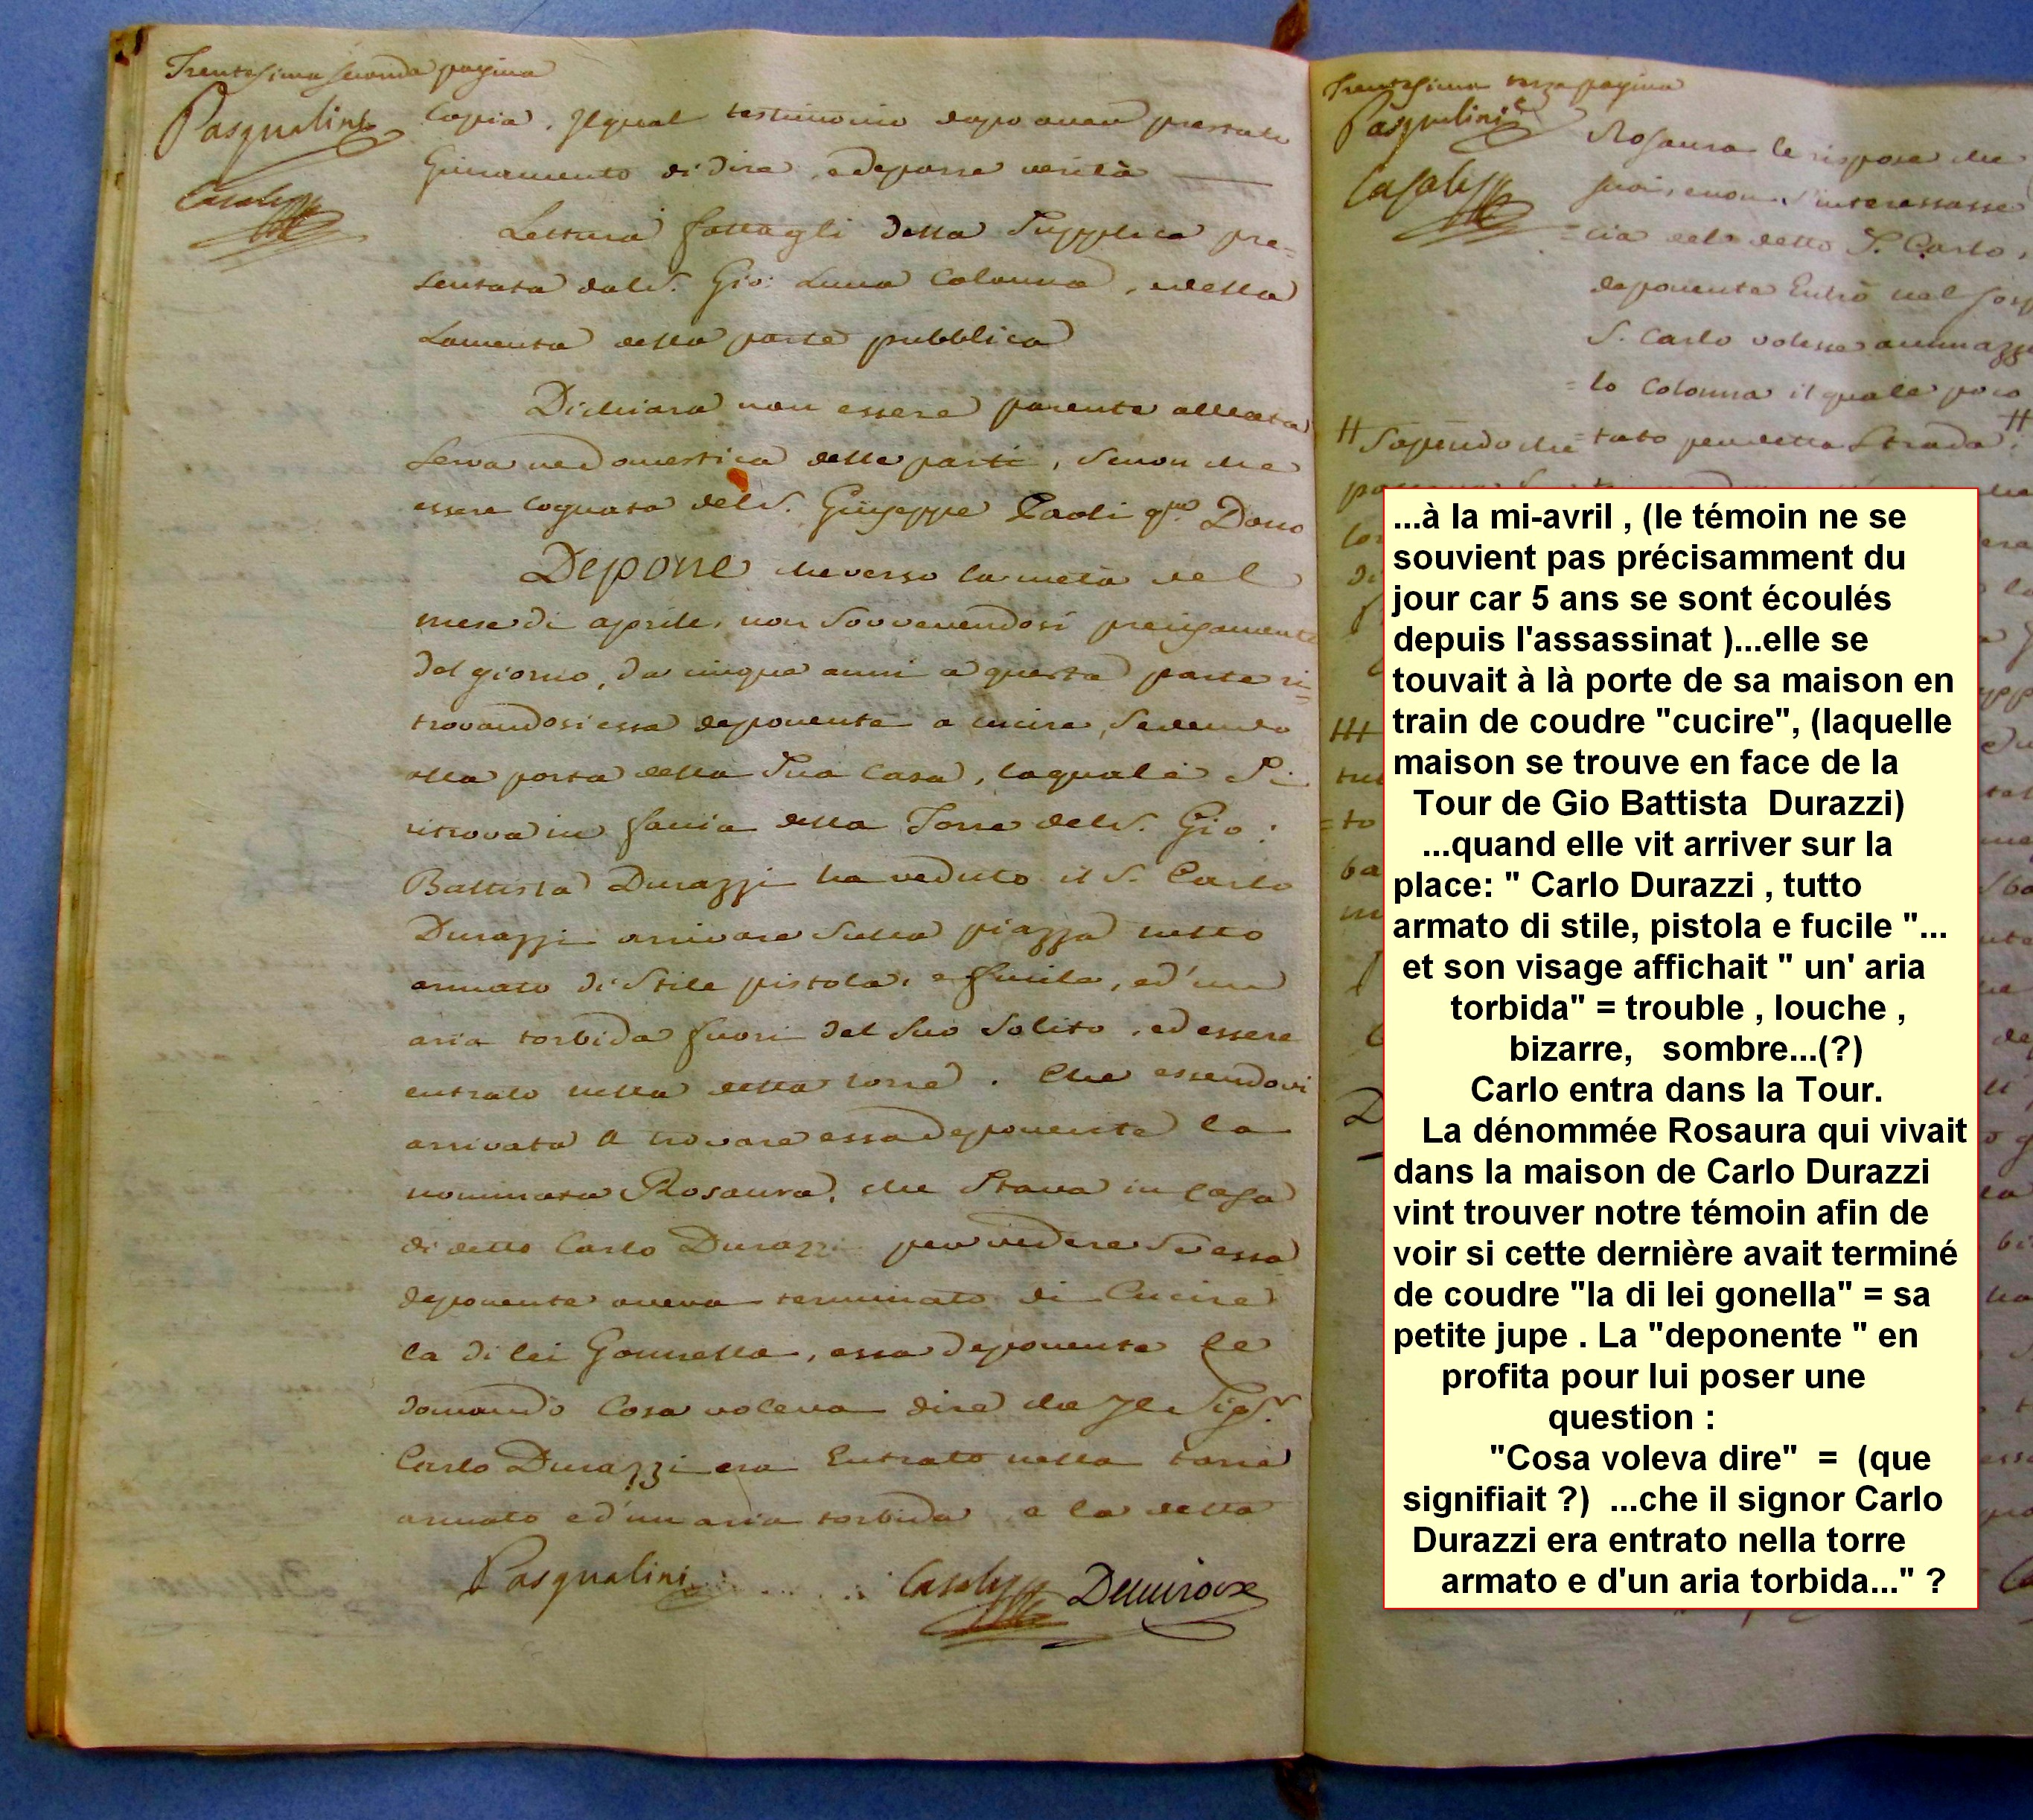 Trentesima seconda pagina
Pasqualini
Casaly
Copia. Il qual testimonio dopo aver prestato
Giuramento di dire, e deporre verità
Lettura fattagli della Supplica pre=
sentata dal S. Gio: Luca Colonna, e della
Lamenta della parte pubblica
Dichiara non essere parente alleata
serva ne domestica delle parti, senon che
essere cognata del S. Giuseppe Paoli qm
Depone che verso la metà del
mese di aprile, non sovvenendosi precisamente
del giorno, da cinque anni a questa parte ri=
trovandosi essa deponente a cucire, sedendo
alla porta della sua Casa, la quale si
ritrova in faccia della Torre del S. Gio:
Battista Durazzi ha veduto il S. Carlo
Durazzi arrivare sulla piazza tutto
armato di Stile pistola, e fucile, ed'un
aria torbida fuori del suo solito, ed essere
entrato nella detta torre. Che essendovi
arrivata a trovare essa deponente la
nominata Rosaura, che stava in casa
di detto Carlo Durazzi per vedere se essa
deponente aveva terminato di Cucire
la di lei Gonnella, essa deponente le
domandò Cosa voleva dire che Il Sigr
Carlo Durazzi era Entrato nella torre
armato ed'un aria torbida, e la detta
Pasqualini
Casaly
Trentesima terza pagina
Pasqualini
Casaly
Rosaura le rispose che
suoi, e non s'interessasse
=cia del detto S. Carlo,
deponente Entrò nel
S. Carlo volesse
=lo Colonna il quale poco
# Sapendo che
=tato per detta Strada #
...à la mi-avril , (le témoin ne se
souvient pas précisamment du
jour car 5 ans se sont écoulés
depuis l'assassinat )...elle se
touvait à là porte de sa maison en
train de coudre "cucire", (laquelle
maison se trouve en face de la
Tour de Gio Battista Durazzi)
...quand elle vit arriver sur la
place: " Carlo Durazzi , tutto
armato di stile, pistola e fucile "...
et son visage affichait " un' aria
torbida" = trouble , louche ,
bizarre, sombre...(?)
Carlo entra dans la Tour.
La dénommée Rosaura qui vivait
dans la maison de Carlo Durazzi
vint trouver notre témoin afin de
voir si cette dernière avait terminé
de coudre "la di lei gonella" = sa
petite jupe . La "deponente " en
profita pour lui poser une
question :
"Cosa voleva dire" = (que
signifiait ?) ...che il signor Carlo
Durazzi era entrato nella torre
armato e d'un aria torbida..." ?